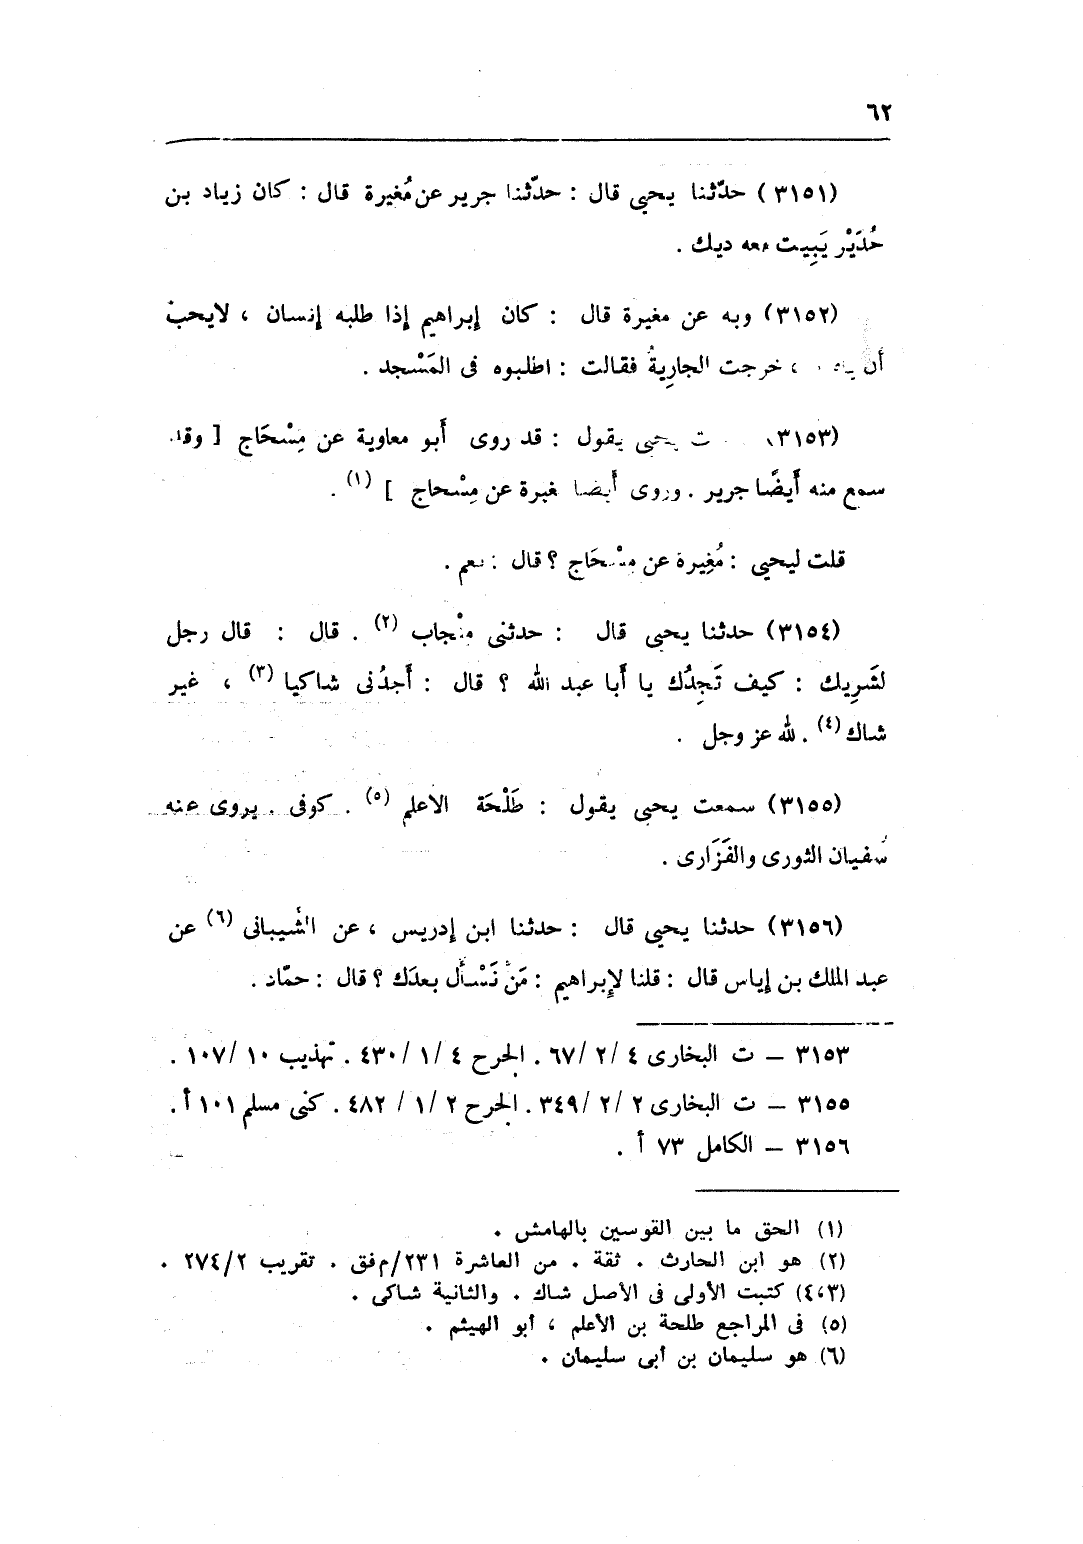 ٦٢
(٣١٥١) حدّثنا يحيى قال : حدّثنا جرير عن مُغيرة قال : كان زياد بن
حُدَيْر يَبِيت معه ديك .
(٣١٥٢) وبه عن مغيرة قال : كان إبراهيم إذا طلبه إنسان ، لايحب
أن ، خرجت الجارِيةُ فقالت : اطلبوه فى المَسْجد .
(٣١٥٣) يحيى يقول : قد روى أَبو معاوية عن مِسْحَاج [ وقد
سمع منه أَيضًا جرير . وروى أيضا مغيرة عن مِسْحاج ] (١) .
قلت ليحيى : مُغِيرة عن مِسْحَاج ؟ قال : نعم .
(٣١٥٤) حدثنا يحيى قال : حدثنى مِنْجاب (٢) . قال : قال رجل
لشَرِيك : كيف تَجِدُك يا أَبا عبد الله ؟ قال : أَجدُنى شاكيا (٣) ، غير
شاك (٤) . لله عز وجل .
(٣١٥٥) سمعت يحيى يقول : طَلْحَة الاعلم (٥) . كوفى . يروى عنه
سُفيان الثورى والفَزَارى .
(٣١٥٦) حدثنا يحيى قال : حدثنا ابن إدريس ، عن الشَيبانى (٦) عن
عبد الملك بن إياس قال : قلنا لإِبراهيم : مَنْ نَسْأَل بعدَك ؟ قال : حمّاد .
٣١٥٣ – ت البخارى ٤ /٢ /٦٧ . الجرح ٤ /١ /٤٣٠ . تهذيب ١٠ /١٠٧ .
٣١٥٥ – ت البخارى ٢ /٢ /٣٤٩ . الجرح ٢ /١ / ٤٨٢ . كنى مسلم ١٠١ أ .
٣١٥٦ – الكامل ٧٣ أ .
(١) الحق ما بين القوسين بالهامش .
(٢) هو ابن الحارث . ثقة . من العاشرة ٢٣١/م فق . تقريب ٢٧٤/٢ .
(٤،٣) كتبت الأولى فى الأصل شاك . والثانية شاكى .
(٥) فى المراجع طلحة بن الأعلم ، أبو الهيثم .
(٦) هو سليمان بن أبى سليمان .